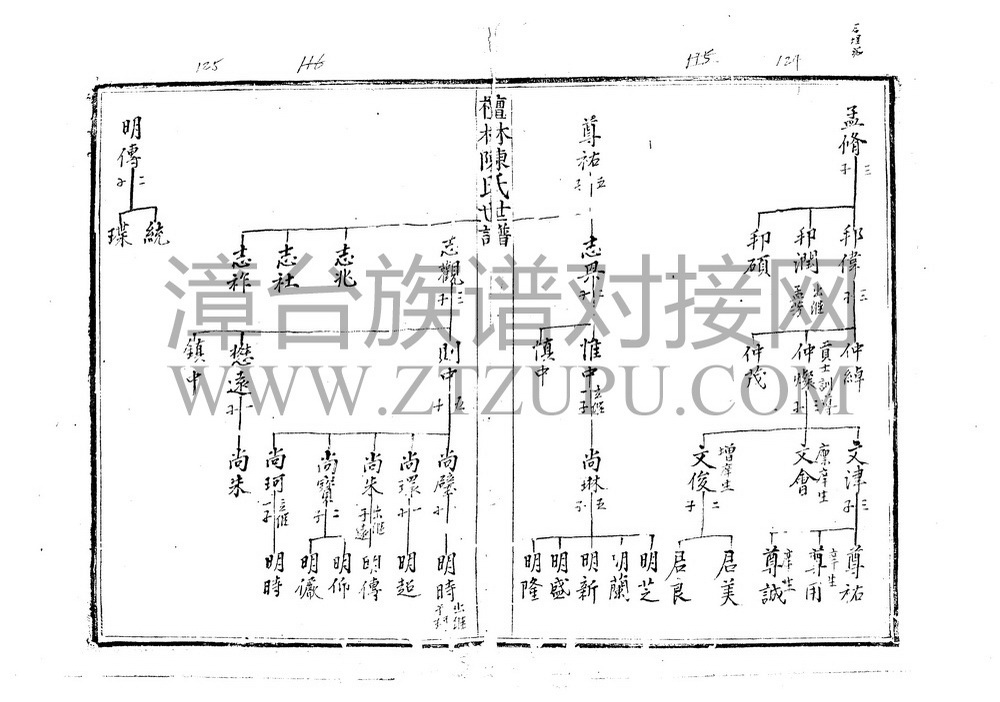 125
116
115
124
檀林陳氏世譜
孟脩
三子
邦偉
三子
邦潤
出繼
邦碩
仲綽
仲燦
貢士訓導
三子
仲茂
文津
三子
文會
廩庠生
文俊
增庠生
二子
尊祐
尊用
庠生
尊誠
庠生
居美
居良
尊祐
五子
志典
二子
志觀
三子
志兆
志社
志祚
惟中
立繼
一子
慎中
則中
五子
懋遠
一子
鎮中
尚琳
五子
尚璧
一子
尚環
一子
尚朱
出繼
尚寶
二子
尚珂
立繼
一子
尚朱
明芝
明蘭
明新
明盛
明隆
明時
出繼
明超
明傳
明仰
明儼
明時
明傳
二子
統
璞
漳台族谱对接网
WWW.ZTZUPU.COM